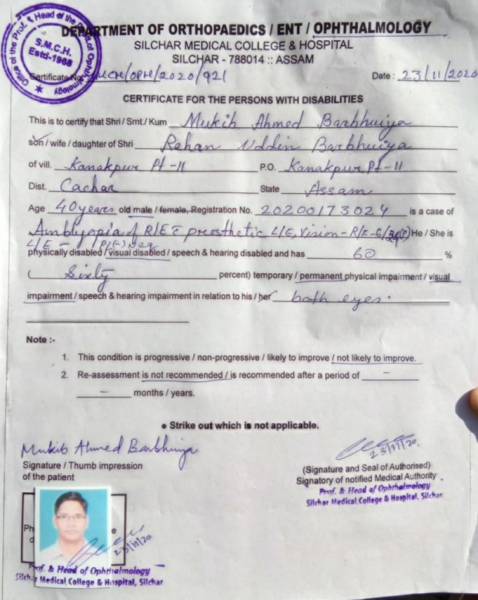 Office of the Prof. & Head of the Dept. of Ophthalmology
S.M.C.H.
Estd-1968
DEPARTMENT OF ORTHOPAEDICS / ENT / OPHTHALMOLOGY
SILCHAR MEDICAL COLLEGE & HOSPITAL
SILCHAR - 788014 :: ASSAM
Certificate No. SMCH/OPH/2020/921 Date : 23/11/2020
CERTIFICATE FOR THE PERSONS WITH DISABILITIES
This is to certify that Shri / Smt./ Kum Mukib Ahmed Barbhuiya
son / wife / daughter of Shri Rehan Uddin Barbhuiya
of vill. Kanakpur Pt-II P.O. Kanakpur Pt-II
Dist. Cachar State Assam
Age 40 years old male / female, Registration No. 20200173024 is a case of
Amblyopia of R/E prosthetic L/E, Vision - R/E - He / She is
L/E -
physically disabled / visual disabled / speech & hearing disabled and has 60 %
( Sixty percent) temporary / permanent physical impairment / visual
impairment / speech & hearing impairment in relation to his / her both eyes.
Note :-
1. This condition is progressive / non-progressive / likely to improve / not likely to improve.
2. Re-assessment is not recommended / is recommended after a period of –
– months / years.
● Strike out which is not applicable.
Mukib Ahmed Barbhuiya
Signature / Thumb impression
of the patient
23/11/20
(Signature and Seal of Authorised)
Signatory of notified Medical Authority
Prof. & Head of Ophthalmology
Silchar Medical College & Hospital, Silchar
23/11/20
Prof. & Head of Ophthalmology
Silchar Medical College & Hospital, Silchar